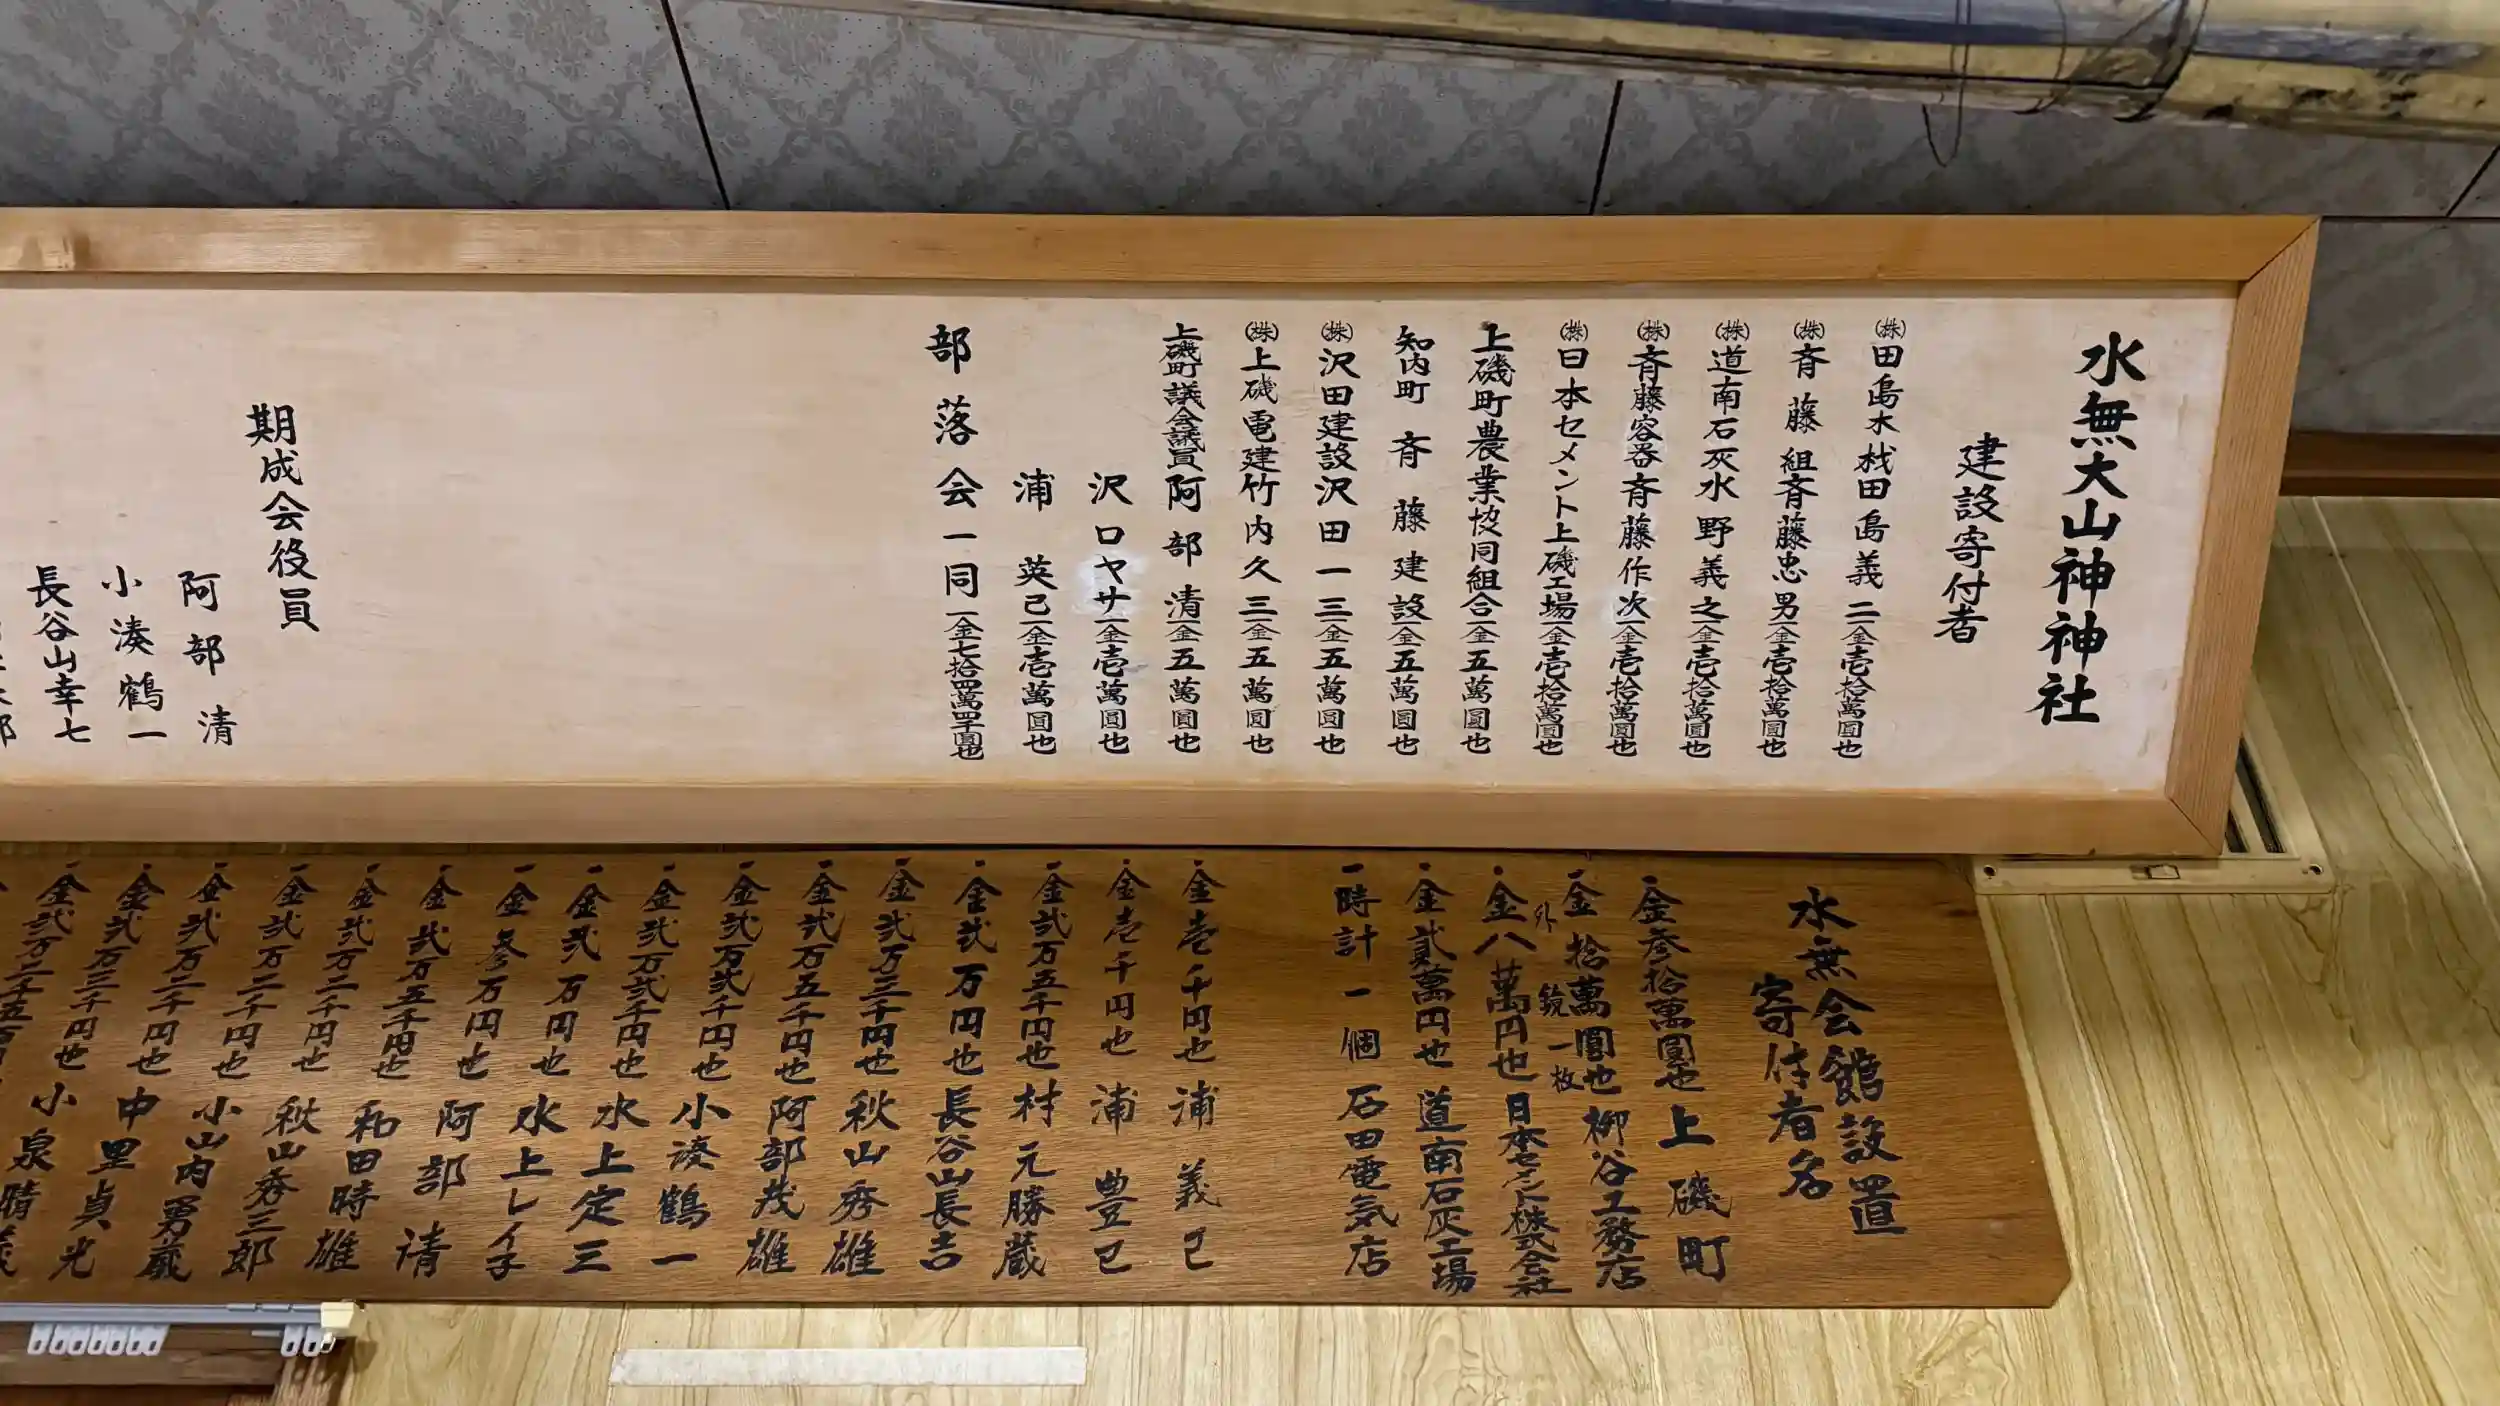 水無大山神神社
建設寄付者
㈱田島木材田島義二 一金壱拾萬圓也
㈱斉藤組斉藤忠男 一金壱拾萬圓也
㈱道南石灰水野義之 一金壱拾萬圓也
㈱斉藤容器斉藤作次 一金壱拾萬圓也
㈱日本セメント上磯工場 一金壱拾萬圓也
上磯町農業協同組合 一金五萬圓也
知内町 斉藤建設 一金五萬圓也
㈱沢田建設沢田一三 一金五萬圓也
㈱上磯電建竹内久三 一金五萬圓也
上磯町議会議員阿部清 一金五萬圓也
沢口ヤサ 一金壱萬圓也
浦英己 一金壱萬圓也
部落会一同 一金七拾四萬四千圓也
期成会役員
阿部清
小湊鶴一
長谷山幸七
水無会館設置
寄付者名
一金参拾萬圓也 上磯町
一金拾萬圓也 柳谷工務店
外 鏡一枚
一金八萬円也 日本セメント株式会社
一金貳萬円也 道南石灰工場
一時計一個 石田電気店
一金壱千円也 浦義己
一金壱千円也 浦豊己
一金弐万五千円也 村元勝蔵
一金弐万円也 長谷山長吉
一金弐万三千円也 秋山秀雄
一金弐万五千円也 阿部茂雄
一金弐万弐千円也 小湊鶴一
一金弐万弐千円也 水上定三
一金弐万円也 水上レイ子
一金参万円也 阿部清
一金弐万五千円也 和田時雄
一金弐万二千円也 秋山秀三郎
一金弐万二千円也 小山内勇蔵
一金弐万二千円也 中里貞光
一金弐万三千円也 小泉晴義
一金弐万二千五百